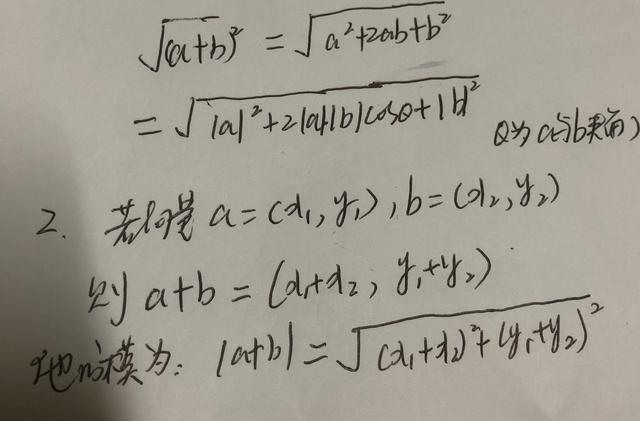 √(a+b)² = √a²+2ab+b²
= √|a|²+2|a||b|cosθ+|b|²
θ为a与b夹角)
2. 若向量 a=(x₁,y₁),b=(x₂,y₂)
则 a+b=(x₁+x₂, y₁+y₂)
它的模为: |a+b|=√(x₁+x₂)²+(y₁+y₂)²